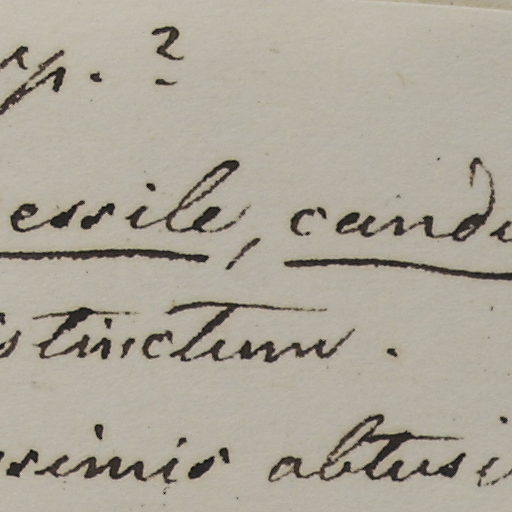 sp. ?
essile, cand
stinctum.
ssimis obtusi